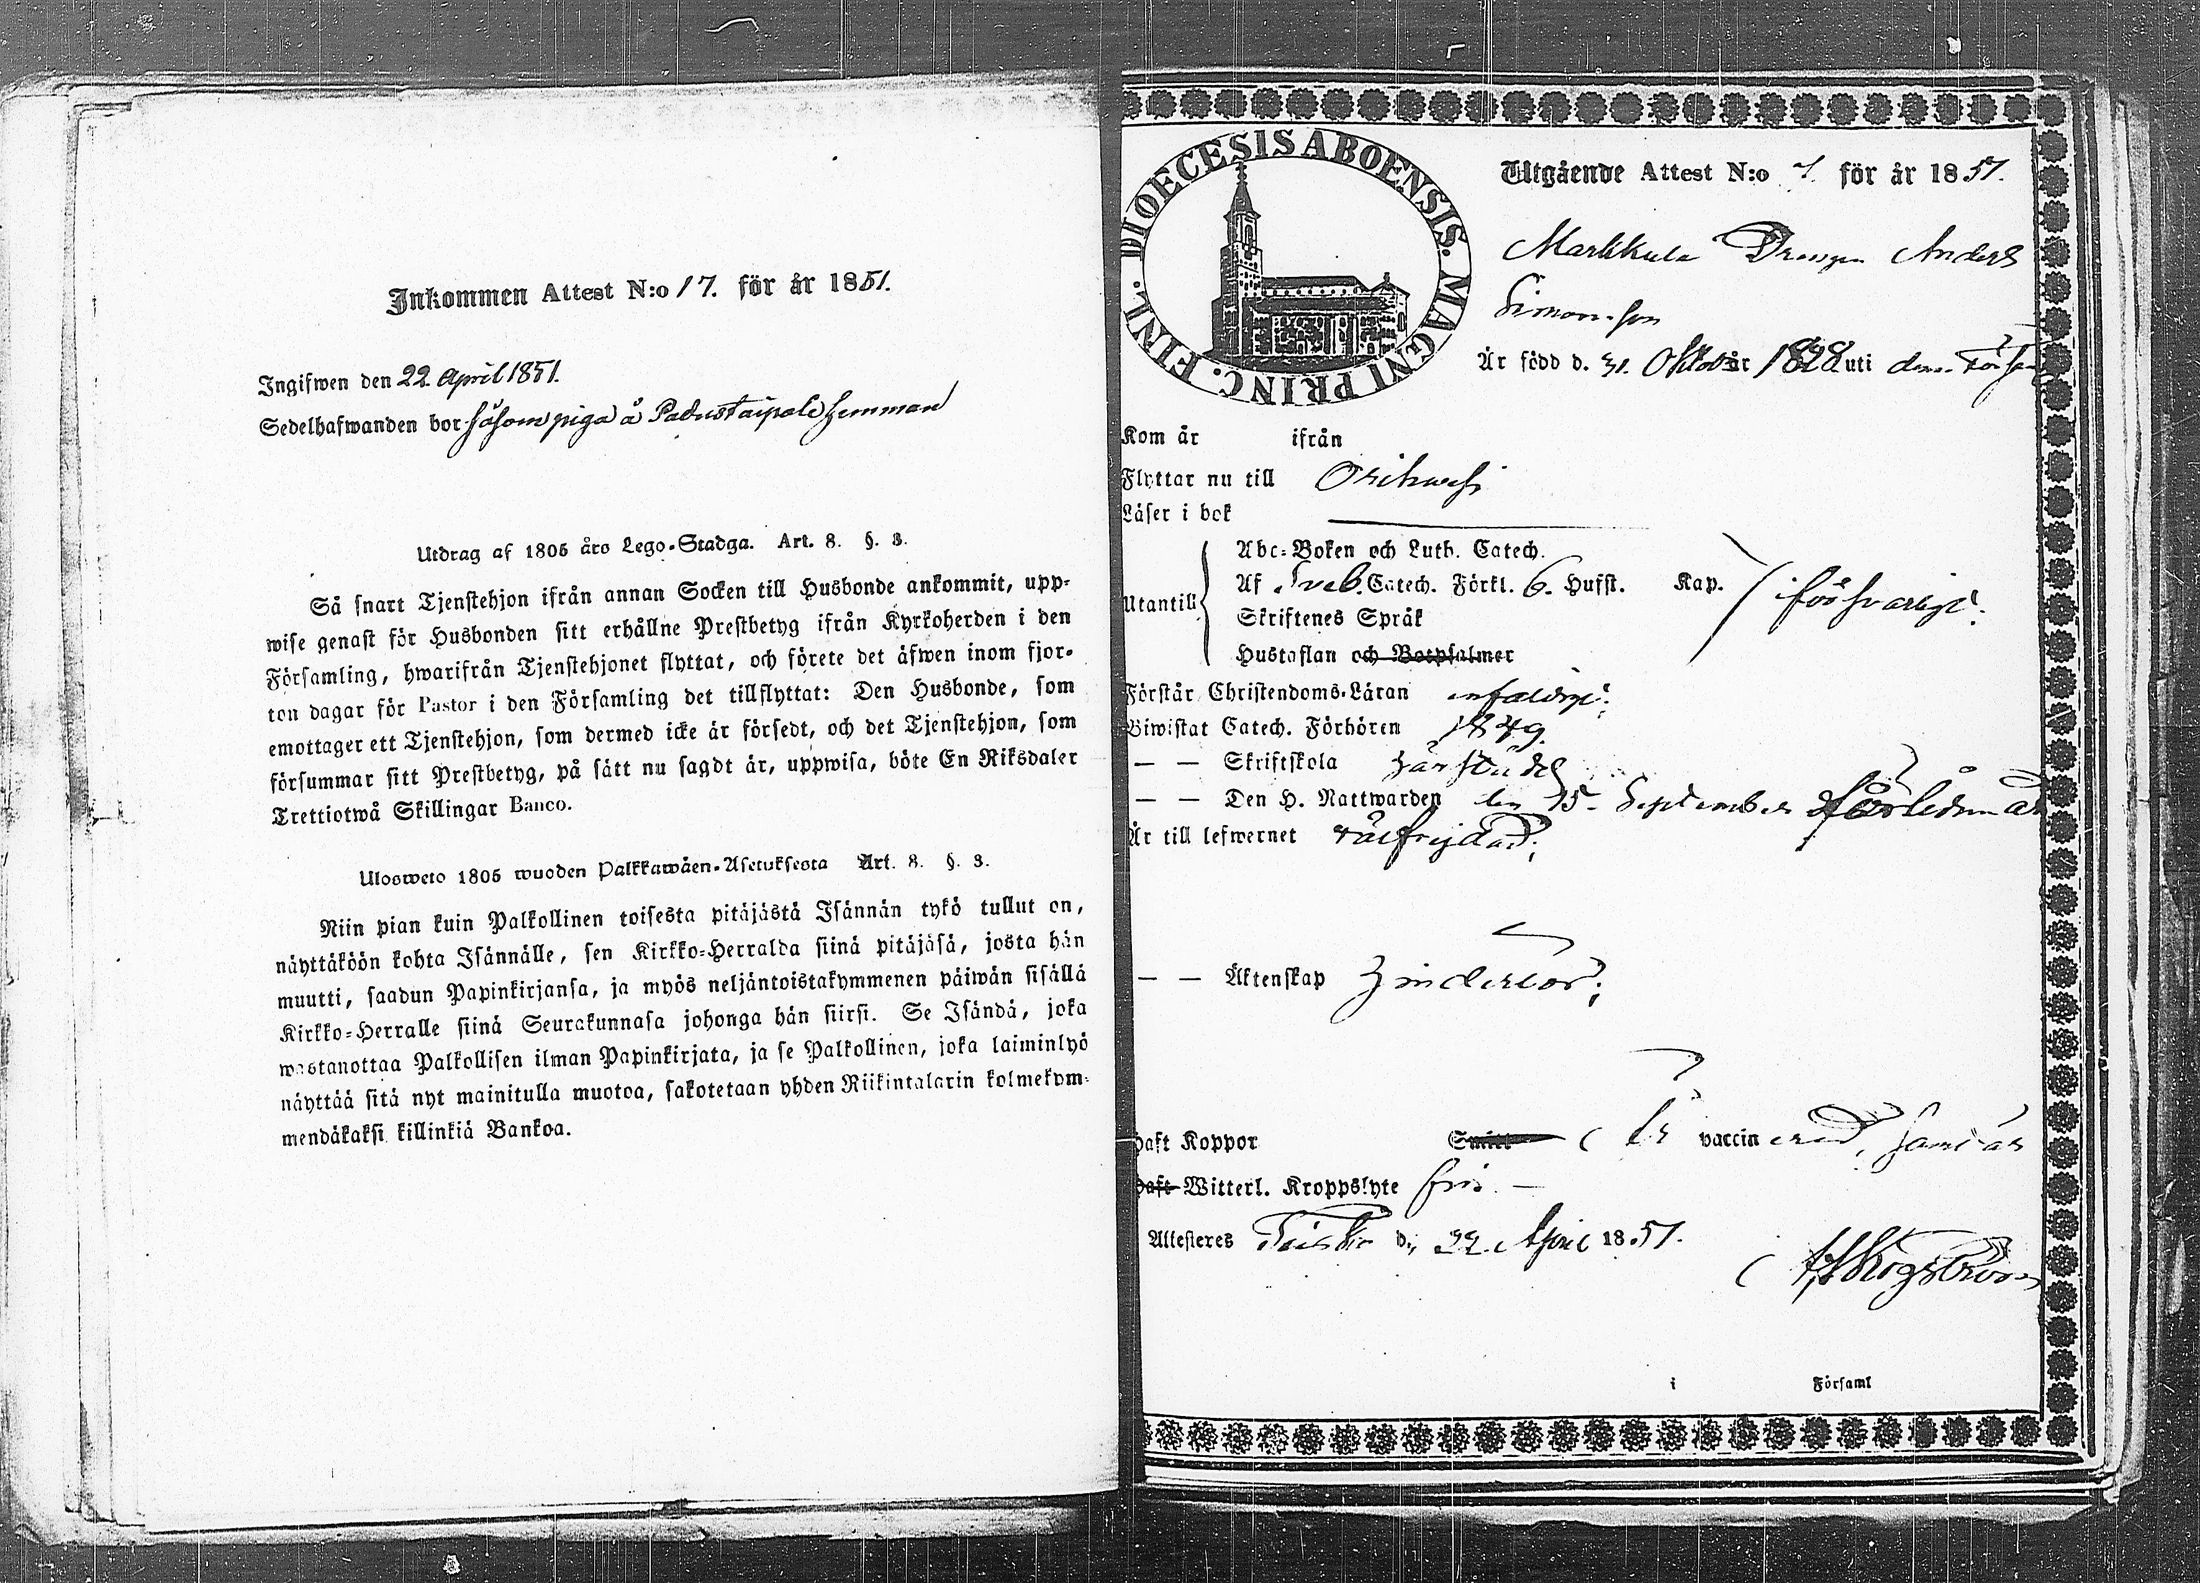 Inkommen Attest N:o 17. för år 1851.
Ingifwen den 22. April 1851.
Sedelhafwanden bor såsom piga å Padustaipale hemman
Utdrag af 1805 års Lego-Stadga. Art. 8. §. 3.
Så snart Tjenstehjon ifrån annan Socken till Husbonde ankommit, upp-
wise genast för Husbonden sitt erhållne Prestbetyg ifrån Kyrkoherden i den
Församling, hwarifrån Tjenstehjonet flyttat, och förete det äfwen inom fjor-
ton dagar för Pastor i den Församling det tillflyttat: Den Husbonde, som
emottager ett Tjenstehjon, som dermed icke är försedt, och det Tjenstehjon, som
försummar sitt Prestbetyg, på sätt nu sagdt är, uppwisa, böte En Riksdaler
Trettiotwå Skillingar Banco.
Ulosweto 1805 wuoden Palkkawäen-Asetuksesta Art. 8. §. 3.
Niin pian kuin Palkollinen toisesta pitäjästä Isännän tykö tullut on,
näyttäköön kohta Isännälle, sen Kirkko-Herralda siinä pitäjäsä, josta hän
muutti, saadun Papinkirjansa, ja myös neljäntoistakymmenen päiwän sisällä
Kirkko-Herralle siinä Seurakunnasa johonga hän siirsi. Se Isändä, joka
wastanottaa Palkollisen ilman Papinkirjata, ja se Palkollinen, joka laiminlyö
näyttää sitä nyt mainitulla muotoa, sakotetaan yhden Riikintalarin kolmekym-
mendäkaksi killinkiä Bankoa.
DIOECESIS ABOENSIS. MAGNI PRINC. FINL.
Utgående Attest N:o 7. för år 1851.
Markkula Drengen Anders
Simonsson
Är född d. 31. Oktober år 1828 uti denna Förs
Kom år ifrån
Flyttar nu till Orihwesi
Läser i bok
Utantill
Abc-Boken och Luth. Catech.
Af Sveb. Catech. Förkl. 6. Hufst. Kap. försvarligt;
Skriftenes Språk
Hustaflan och Botpsalmer
Förstår Christendoms-Läran enfaldigt;
Biwistat Catech. Förhören 1849.
— — Skriftskola härstädes
— — Den H. Nattwarden den 15. September förleden år
Är till lefwernet välfrejdad;
— — Äktenskap hinderlös;
Haft Koppor Smitt är vaccinerad, samt är
Haft Witterl. Kroppslyte fri. —
Attesteres Teisko d. 22. April 1851.
i Församl